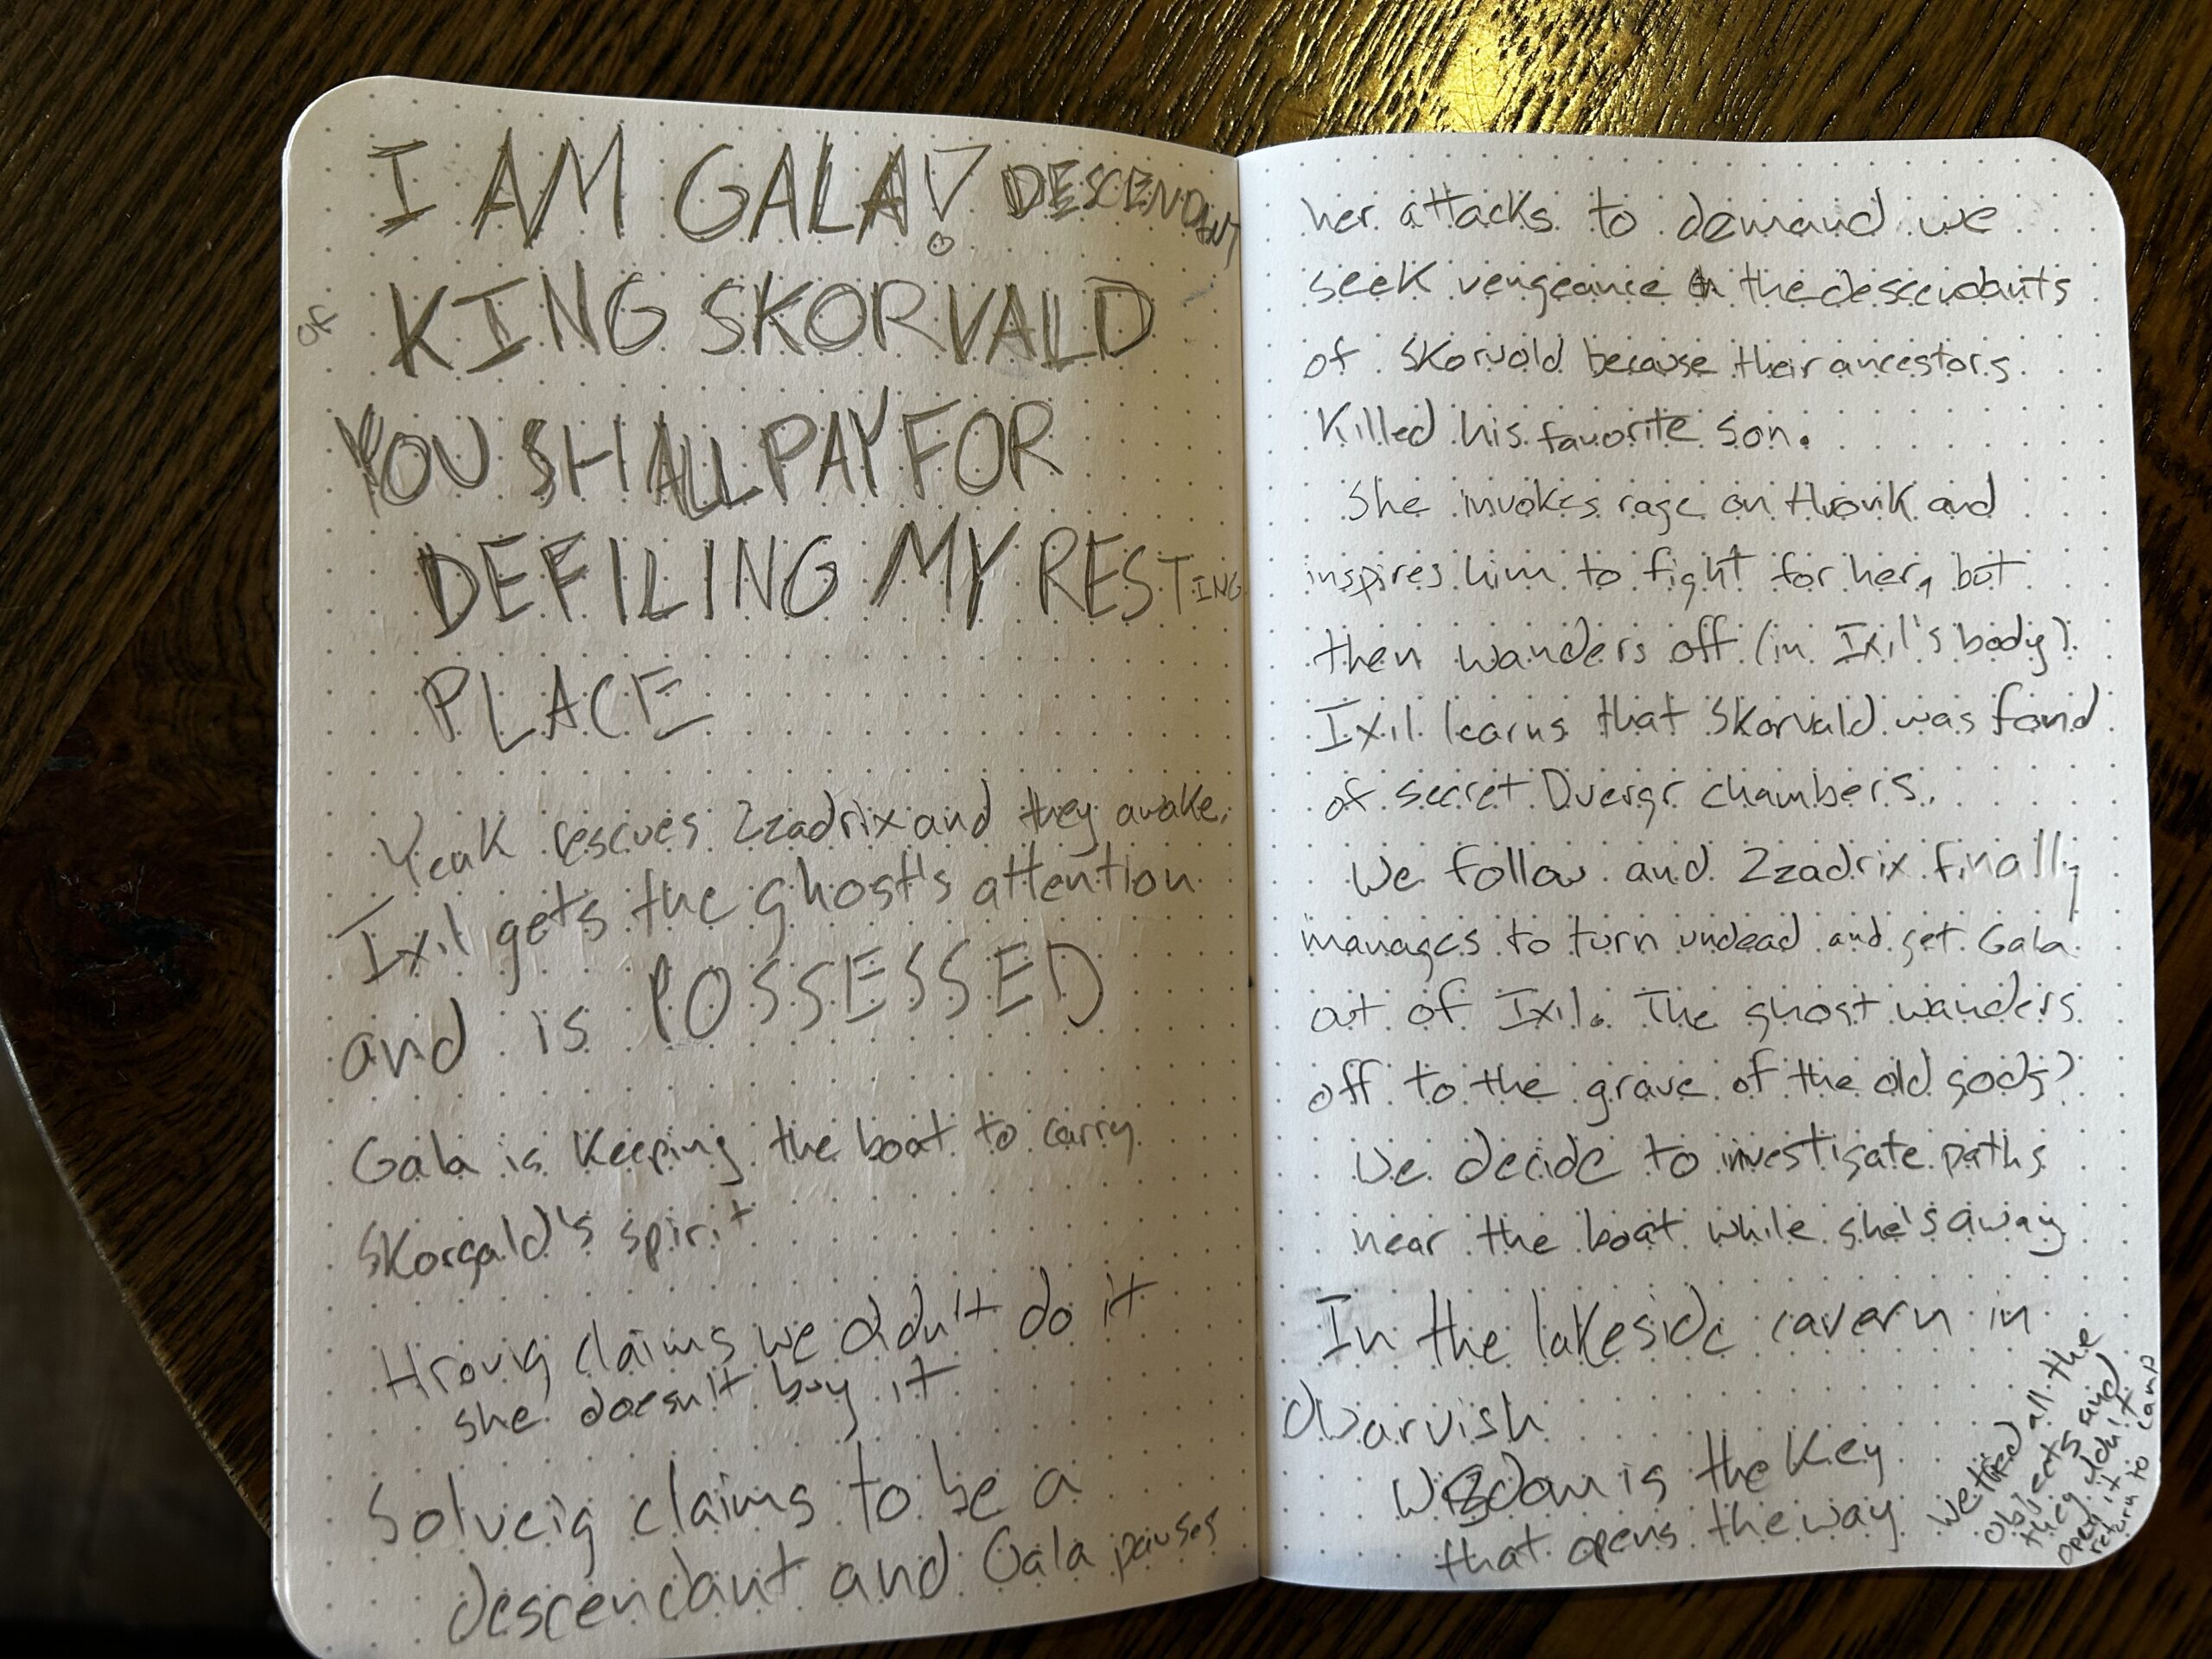 I AM GALA! DESCENDANT
of KING SKORVALD
YOU SHALL PAY FOR
DEFILING MY RESTING
PLACE
Yeak rescues Zzadrix and they awake.
Ixil gets the ghost's attention
and is POSSESSED
Gala is keeping the boat to carry
Skorgald's spirit
Hrovig claims we didn't do it
she doesn't buy it
Solveig claims to be a
descendant and Gala pauses
her attacks to demand we
seek vengeance on the descendants
of Skorvald because their ancestors
killed his favorite son.
She invokes rage on and
inspires him to fight for her, but
then wanders off (in Ixil's body).
Ixil learns that Skorvald was fond
of secret Duergr chambers.
We follow and Zzadrix finally
manages to turn undead and get Gala
out of Ixil. The ghost wanders
off to the grave of the old gods?
We decide to investigate paths
near the boat while she's away
In the lakeside cavern in
Dwarvish
Wisdom is the key
that opens the way
We tried all the
objects and
they didn't
open it
return to camp